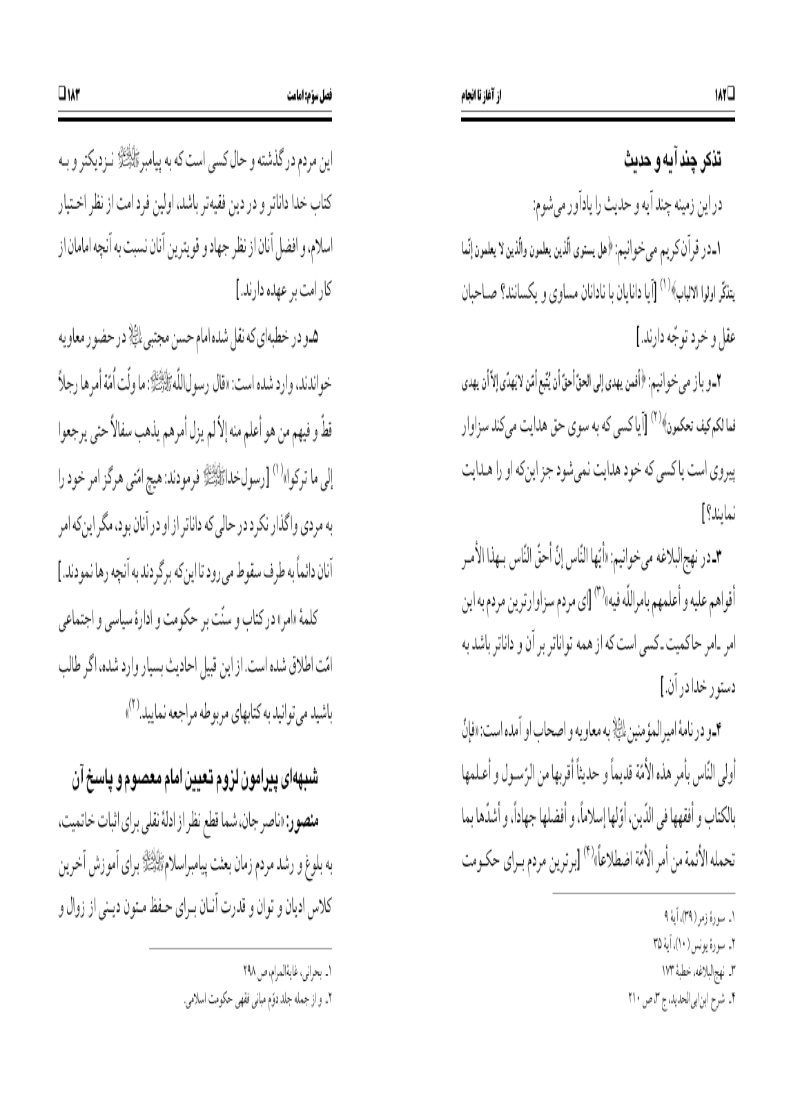 ❏۱۸۲
از آغاز تا انجام
تذکر چند آیه و حدیث
در این زمینه چند آیه و حدیث را یادآور می‌شوم:
۱ـ در قرآن کریم می‌خوانیم: ﴿هل یستوی الّذین یعلمون والّذین لا یعلمون إنّما
یتذکّر اولوا الالباب﴾(۱) [آیا دانایان با نادانان مساوی و یکسانند؟ صاحبان
عقل و خرد توجّه دارند.]
۲ـ و باز می‌خوانیم: ﴿أفمن یهدی إلی الحقّ أحقّ أن یُتّبع أمّن لایَهِدّی إلاّ أن یهدی
فما لکم کیف تحکمون﴾(۲) [آیا کسی که به سوی حق هدایت می‌کند سزاوار
پیروی است یا کسی که خود هدایت نمی‌شود جز این‌که او را هدایت
نمایند؟]
۳ـ در نهج‌البلاغه می‌خوانیم: «أیّها النّاس إنّ أحقّ النّاس بهذا الأمر
أقواهم علیه و أعلمهم بامراللّه فیه»(۳) [ای مردم سزاوارترین مردم به این
امر ـ‌امر حاکمیت‌ـ کسی است که از همه تواناتر بر آن و داناتر باشد به
دستور خدا در آن.]
۴ـ و در نامهٔ امیرالمؤمنین﷼ به معاویه و اصحاب او آمده است: «فإنّ
أولی النّاس بأمر هذه الأمّة قدیماً و حدیثاً أقربها من الرّسول و أعلمها
بالکتاب و أفقهها فی الدّین، أوّلها إسلاماً، و أفضلها جهاداً، و أشدّها بما
تحمله الأئمة من أمر الأمّة اضطلاعاً»(۴) [برترین مردم برای حکومت
۱ـ سورهٔ زمر (۳۹)، آیهٔ ۹
۲ـ سورهٔ یونس (۱۰)، آیهٔ ۳۵
۳ـ نهج‌البلاغه، خطبهٔ ۱۷۳
۴ـ شرح ابن‌ابی‌الحدید، ج ۳، ص ۲۱۰
فصل سوّم: امامت
۱۸۳❏
این مردم در گذشته و حال کسی است که به پیامبرﷺ نزدیکتر و به
کتاب خدا داناتر و در دین فقیه‌تر باشد، اولین فرد امت از نظر اختیار
اسلام، و افضل آنان از نظر جهاد و قویترین آنان نسبت به آنچه امامان از
کار امت بر عهده دارند.]
۵ـ و در خطبه‌ای که نقل شده امام حسن مجتبی در حضور معاویه
خواندند، وارد شده است: «قال رسول‌اللّهﷺ: ما ولّت أمّة أمرها رجلاً
قطّ و فیهم من هو أعلم منه إلاّ لم یزل أمرهم یذهب سفالاً حتی یرجعوا
إلی ما ترکوا»(۱) [رسول‌خداﷺ فرمودند: هیچ امّتی هرگز امر خود را
به مردی واگذار نکرد در حالی که داناتر از او در آنان بود، مگر این‌که امر
آنان دائماً به طرف سقوط می‌رود تا این‌که برگردند به آنچه رها نمودند.]
کلمهٔ «امر» در کتاب و سنّت بر حکومت و ادارهٔ سیاسی و اجتماعی
امّت اطلاق شده است. از این قبیل احادیث بسیار وارد شده، اگر طالب
باشید می‌توانید به کتابهای مربوطه مراجعه نمایید.(۲)»
شبهه‌ای پیرامون لزوم تعیین امام معصوم و پاسخ آن
منصور: «ناصر جان، شما قطع نظر از ادلهٔ نقلی برای اثبات خاتمیت،
به بلوغ و رشد مردم زمان بعثت پیامبراسلامﷺ برای آموزش آخرین
کلاس ادیان و توان و قدرت آنان برای حفظ متون دینی از زوال و
۱ـ بحرانی، غایةالمرام، ص ۲۹۸
۲ـ و از جمله جلد دوّم مبانی فقهی حکومت اسلامی.